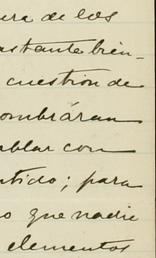 ura de los
astante bien-
cuestion de
ombráran
ablar con
ntido; para
o que nadie
elementos